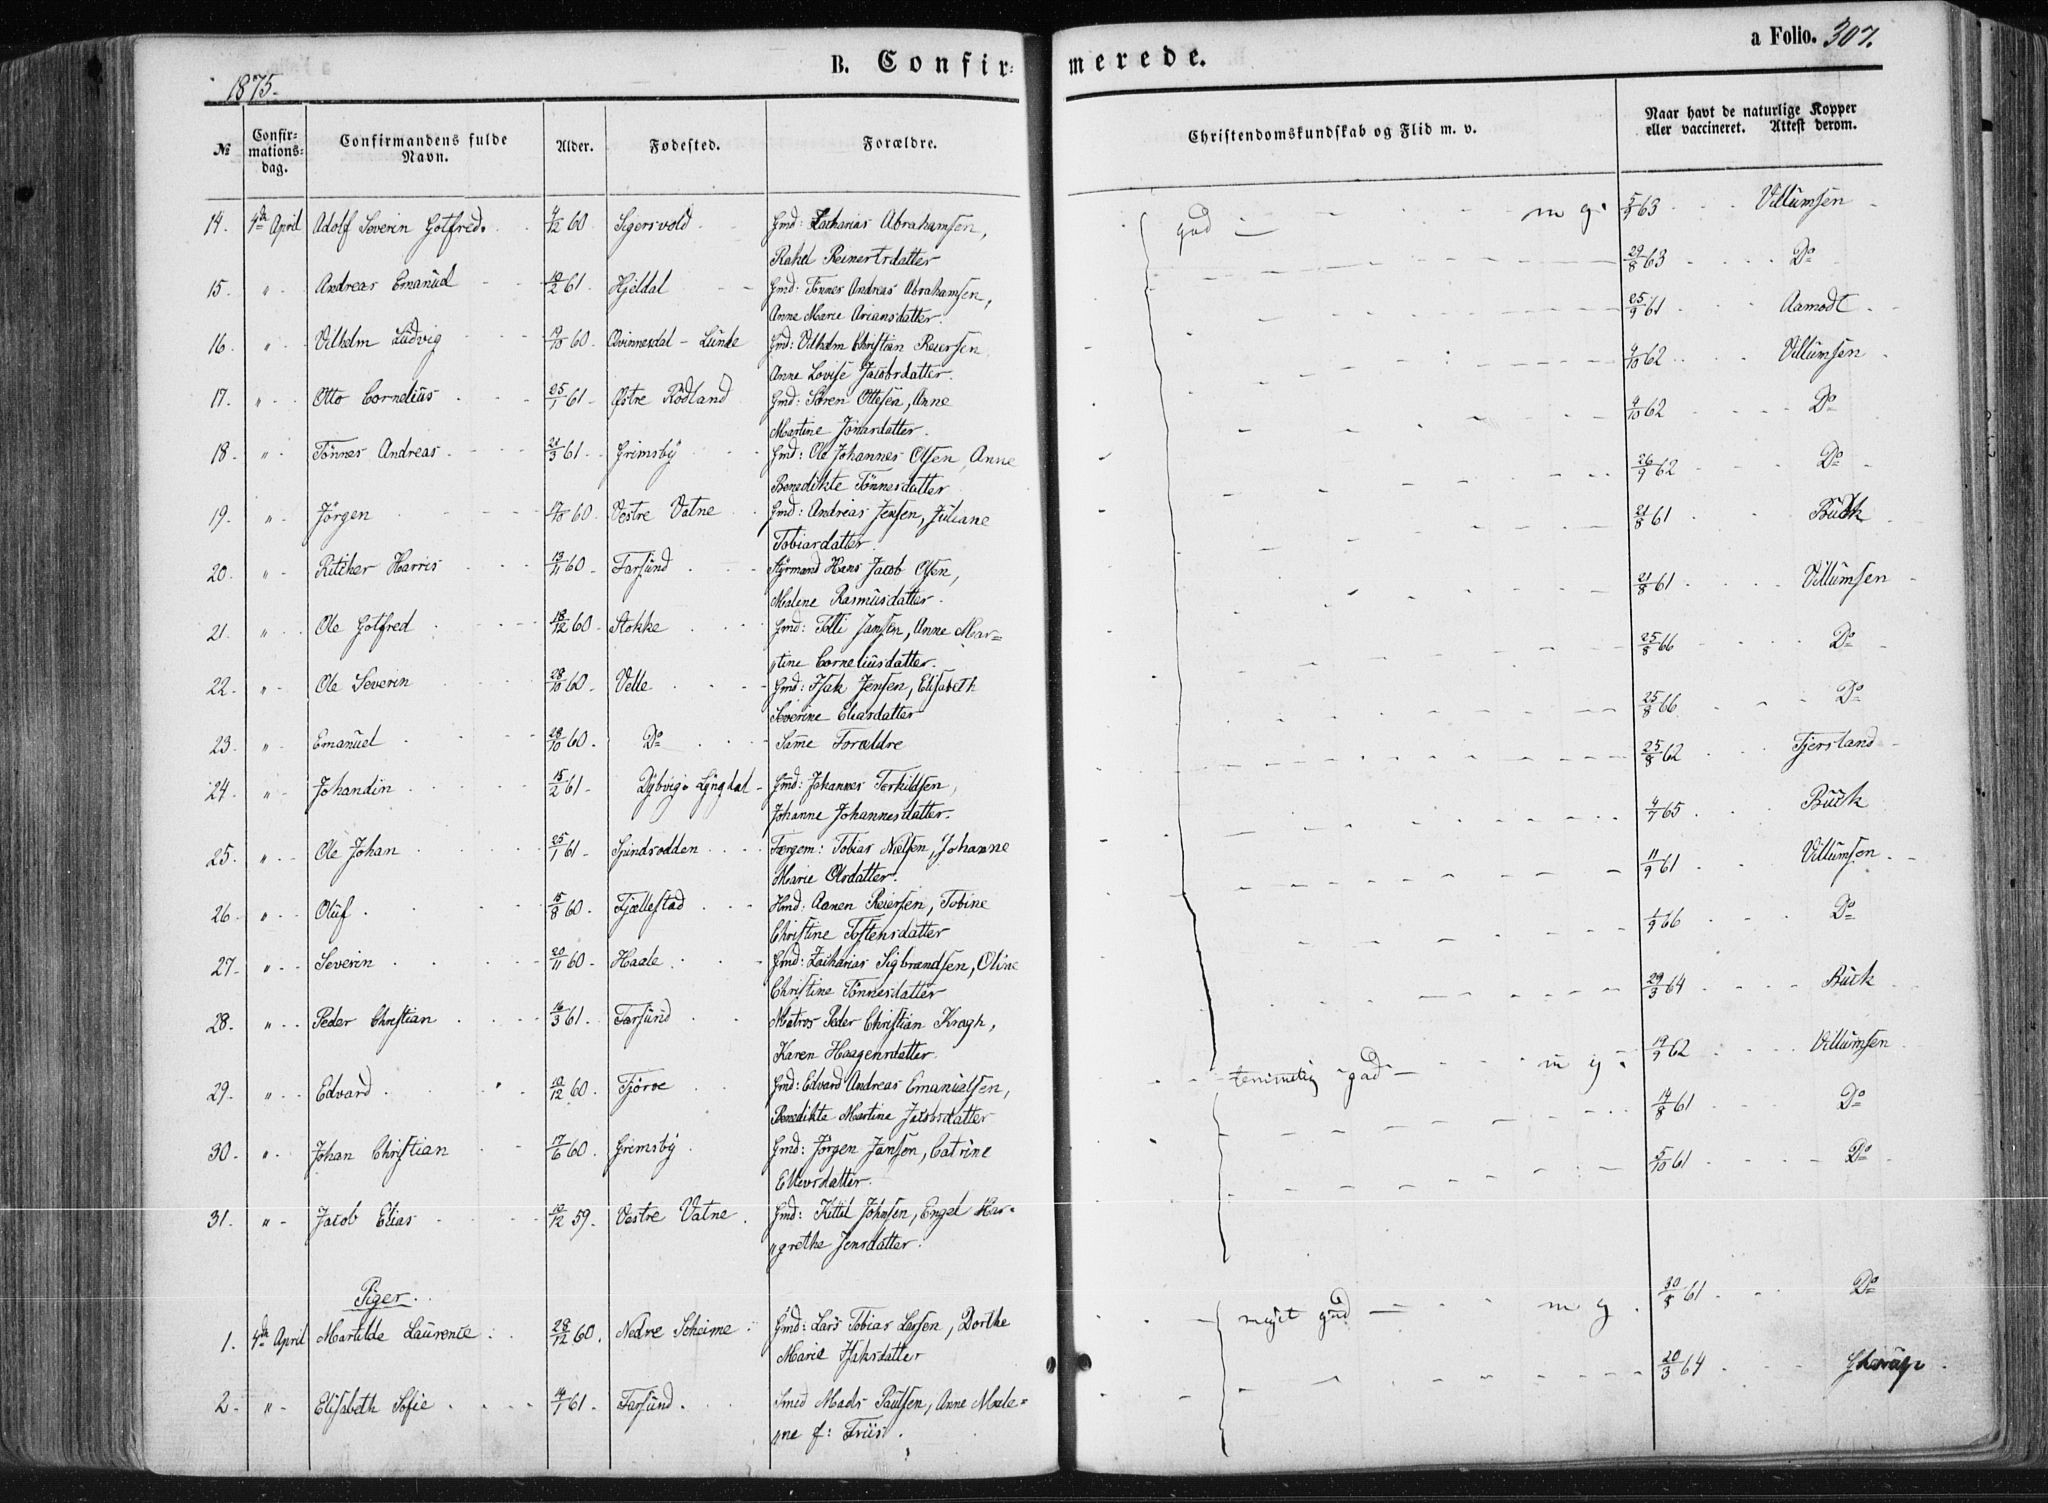 B. Confirmerede.
a Folio. 307.
1875.
№
Confirmationsdag.
Confirmandens fulde Navn.
Alder.
Fødested.
Forældre.
Christendomskundskab og Flid m. v.
Naar havt de naturlige Kopper eller vaccineret. Attest derom.
14. 4de April Adolf Severin Gotfred. 4/12 60 Sigersvold Gmd: Zacharias Abrahamsen, god m g. 5/9 63 Villumsen
Rakel Reinertsdatter
15. " Andreas Emanuel 10/2 61 Hjeldal Gmd: Tönnes Andreas Abrahamsen, 29/8 63 Do
Anne Marie Ariansdatter.
16. " Vilhelm Ludvig /10 60 Qvinnesdal - Lunde Gmd: Vilhelm Christian Reiersen 25/9 61 Aamodt
Anne Lovise Jacobsdatter.
17. " Otto Cornelius 25/1 61 Østre Rödland Gmd: Sören Ottesen, Anne 9/10 62 Villumsen
Martine Jonasdatter.
18. " Tönnes Andreas 21/3 61 Grimsby Gmd: Ole Johannes Olsen, Anne 9/10 62 Do
Benedikte Tönnesdatter
19. " Jörgen /10 60. Vestre Vatne Gmd: Andreas Jensen, Juliane 26/9 62 Do
Tobiasdatter.
20. " Ritcher Harris 13/11 60 Farsund Styrmand Hans Jacob Olsen, 21/8 61 Buck
Malene Rasmusdatter.
21. " Ole Gotfred 18/12 60 Stokke Gmd: Tolli Jansen, Anne Mar= 21/8 61 Villumsen
"tine Corneliusdatter.
22. " Ole Severin 28/10 60 Velle Gmd: Isak Jensen, Elisabeth 25/8 66 Do
Severine Eliasdatter
23. " Emanuel 28/10 60. Do Samme Forældre 25/8 66 Do
24. " Johandin 15/2 61 Dybvig Lyngdal Gmd: Johannes Terkildsen, 25/8 62 Tjersland
Johanne Johannesdatter.
25. " Ole Johan 25/1 61 Spindsodden Færgem: Tobias Nielsen, Johanne 4/7 65 Buck
Marie Olsdatter.
26. " Oluf. 15/8 60. Fjellestad Hmd: Aanen Reiersen, Tobine 11/9 61 Villumsen
Christine Tostensdatter
27. " Severin 20/11 60 Haale Gmd: Zacharias Sigbrandsen, Oline 1/9 66 Do
Christine Tönnesdatter
28. " Peder Christian 16/3 61. Farsund Matros Peder Christian Kragh, 29/3 64 Buck
Karen Haagensdatter
29. " Edvard. 10/12 60 Tjörve Gmd: Edvard Andreas Emanuelsen, temmelig god m g. 19/9 62 Villumsen
Benedikte Martine Jacobsdatter
30. " Johan Christian 17/6 60. Grimsby Gmd: Jörgen Jansen, Catrine 14/8 61 Do
Ellevsdatter.
31. " Jacob Elias 10/12 59. Vestre Vatne Gmd: Kittil Johnsen, Engel Mar= 5/10 61 Do
"grethe Jensdatter.
Piger.
1. 4de April Martilde Laurente 28/12 60. Nedre Scheime Gmd: Lars Tobias Larsen, Dorthe meget god m g. 30/8 61 Do
Marie Isaksdatter
2. " Elisabeth Sofie 14/1 61 Farsund. Smed Mads Paulsen, Anne Male= 20/3 64
"ne f: Friis.